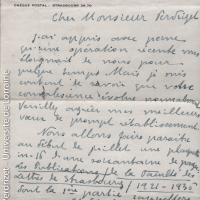 CHÈQUE POSTAL : STRASBOURG
Cher Monsieur Perdrizet
J'ai appris avec peine
qu'une opération récente vous
éloignait de nous pour
quelque temps. Mais je suis
content de savoir que votre
convalescence normale
Veuillez agréer mes meilleurs
vœux de prompt rétablissement
Nous allons faire paraître
au début de juillet une plaquette
in-16 d'une soixantaine de pages
Les Publications de la Faculté des
Lettres de Strasbourg 1921-1935
dont la 1ère partie
Université de Lorraine